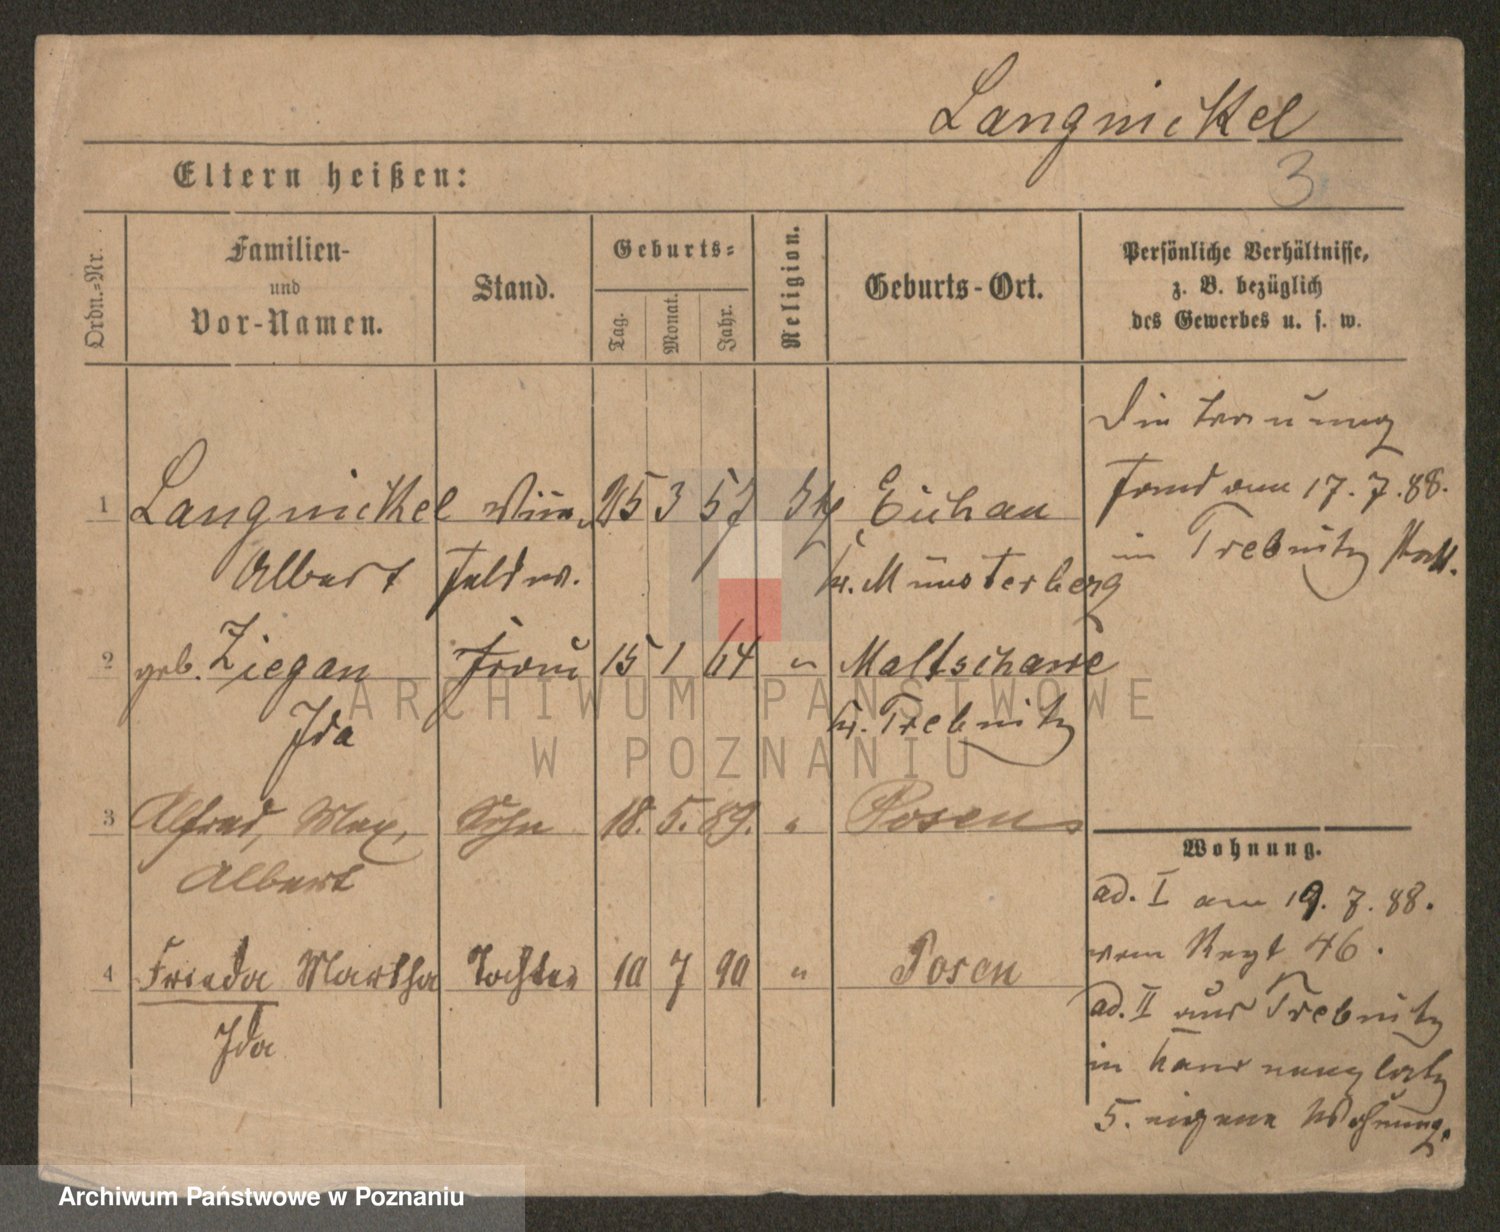 Langnickel
3
Eltern heißen:
Ordn.-Nr.
Familien-
und
Vor-Namen.
Stand.
Geburts-
Tag.
Monat.
Jahr.
Religion.
Geburts-Ort.
Persönliche Verhältnisse,
z. B. bezüglich
des Gewerbes u. s. w.
Die Trauung
fand am 17.7.88.
in Trebnitz statt.
1 Langnickel 25 3 57 Eichau
Albert Feldw. Kr. Münsterberg
2 geb. Ziegan Frau 15 1 64 " Maltschawe
Ida Kr. Trebnitz
3 Alfred, Max, Sohn 18. 5. 89. " Posen
Albert
4 Frieda Martha Tochter 10 7 90 " Posen
Ida
Wohnung.
ad. I am 19.7.88.
vom Regt 46.
ad. II aus Trebnitz
in
5. eigene Wohnung.
ARCHIWUM PAŃSTWOWE
W POZNANIU
Archiwum Państwowe w Poznaniu